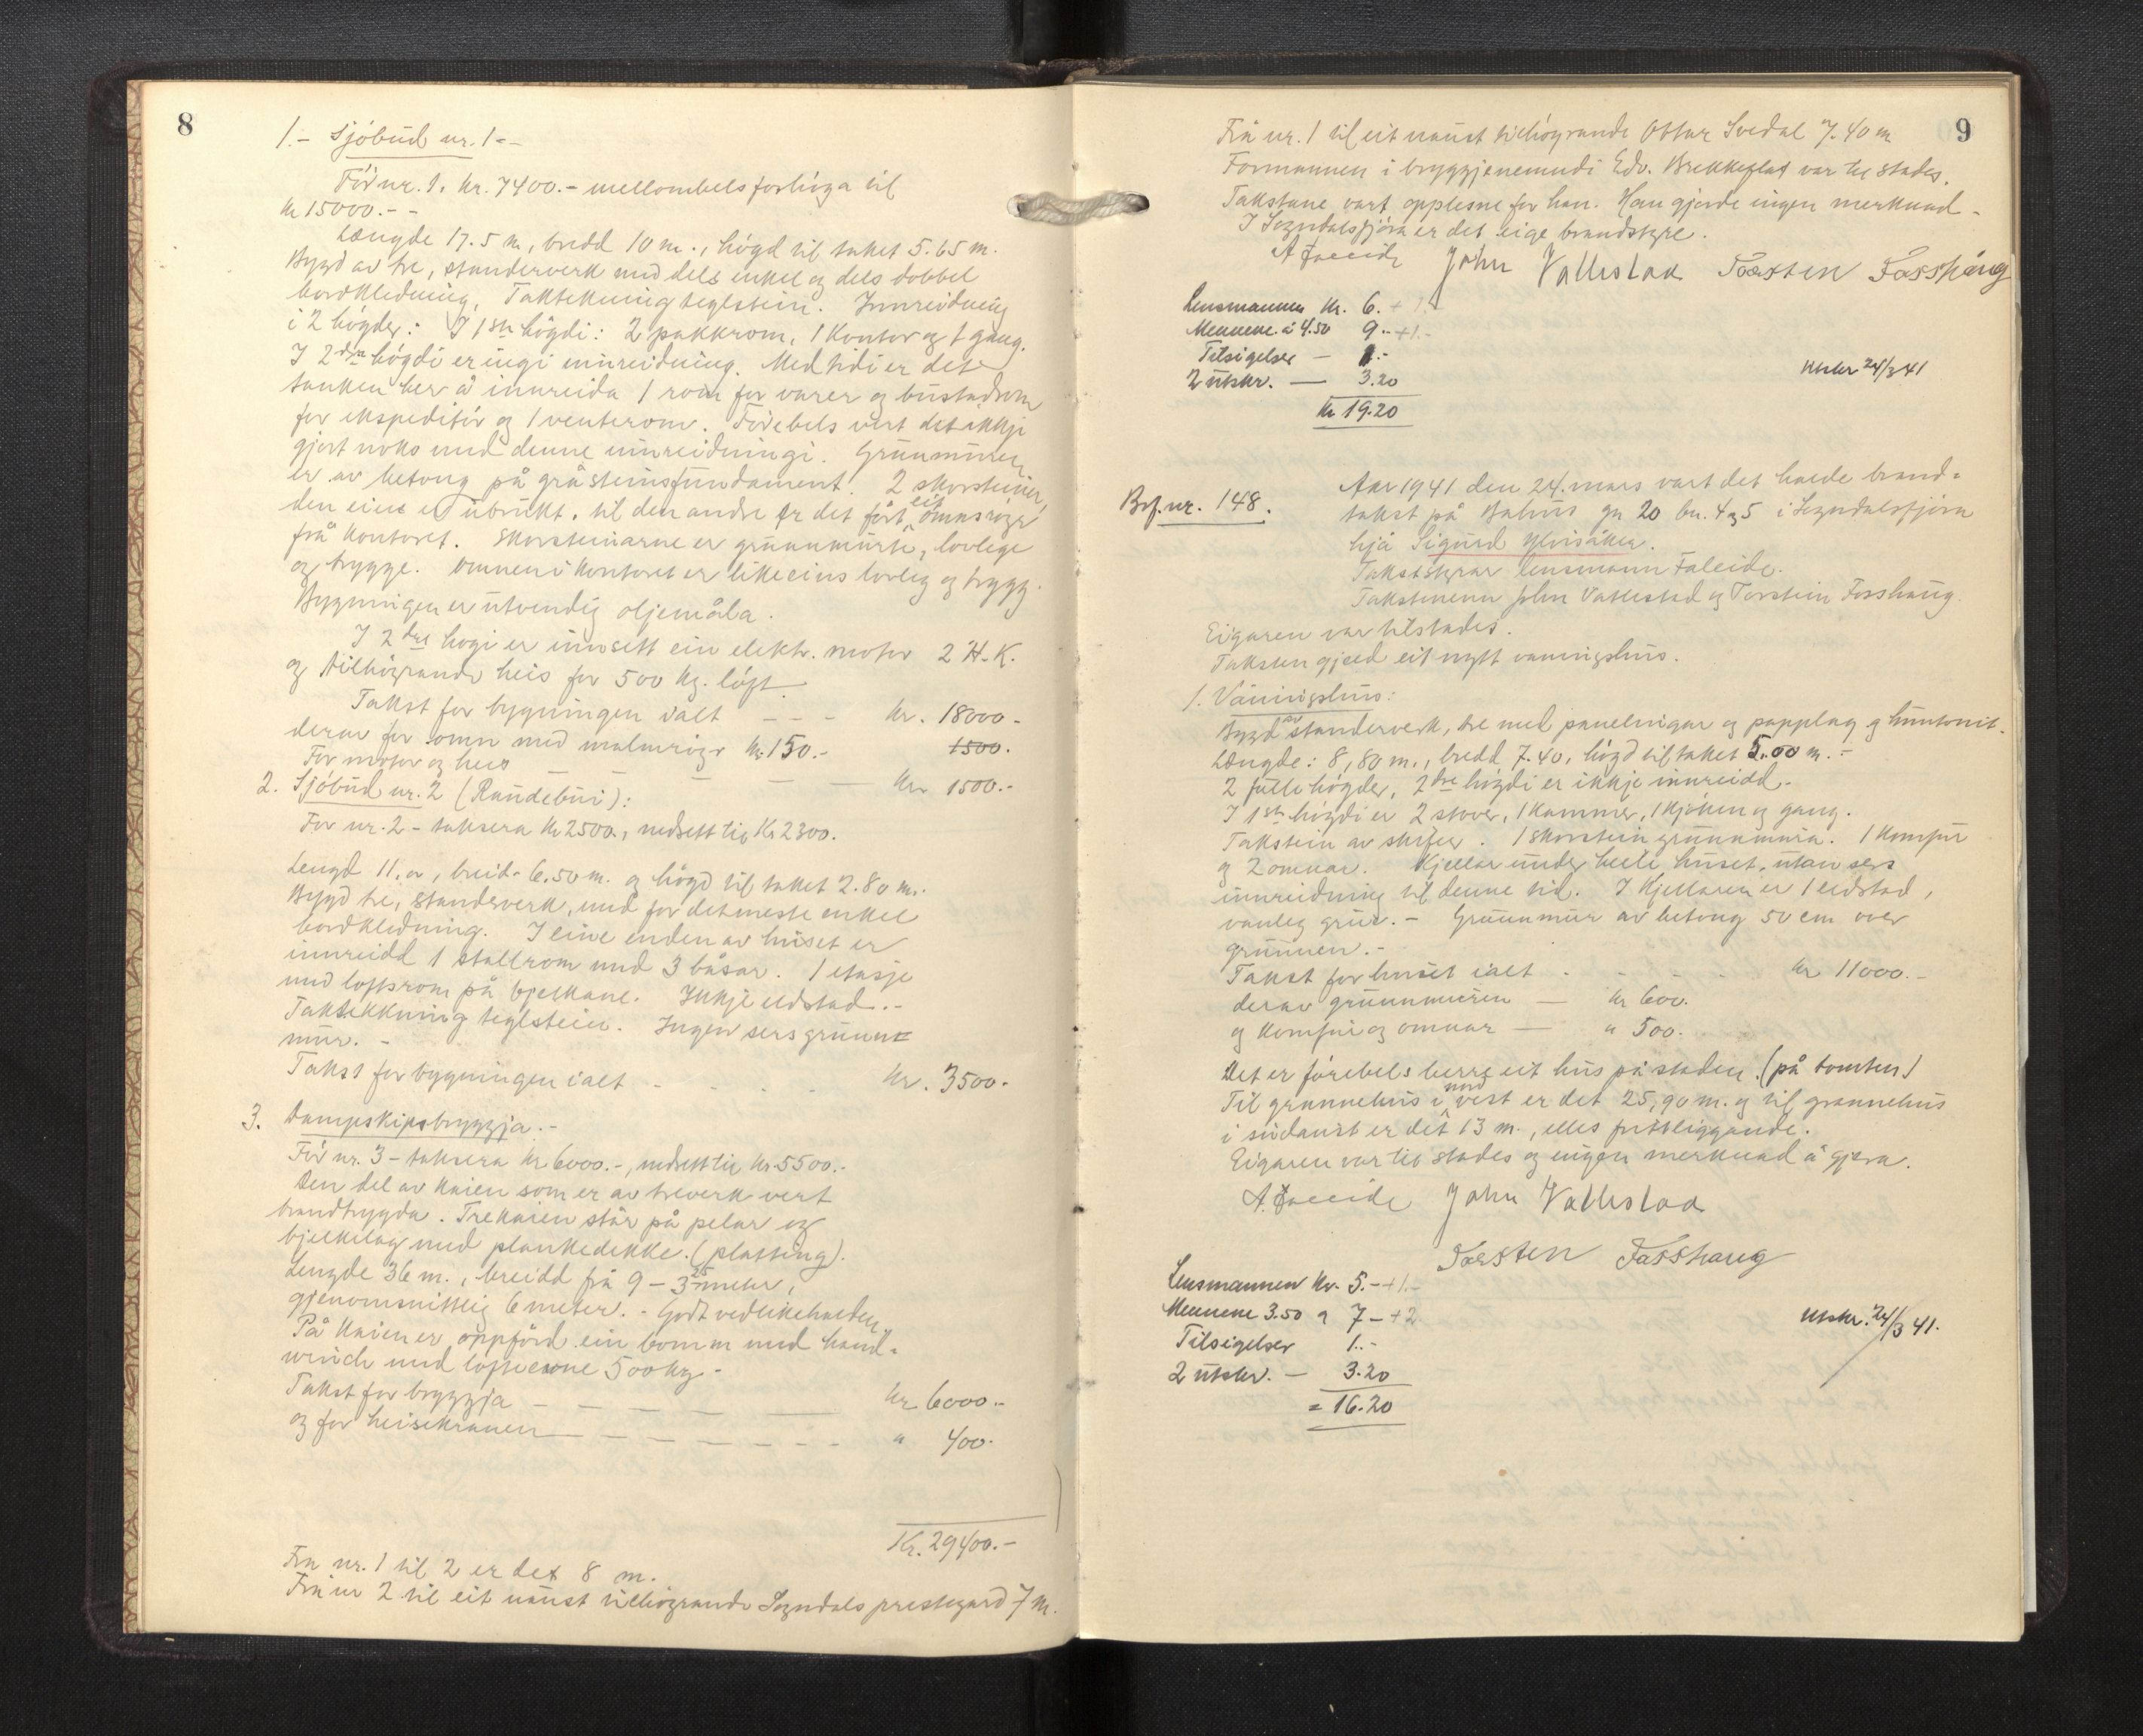 8
1.- Sjöbud nr. 1--
För nr. 1. kr. 7400.- mellombels forhöga til
kr 15000.--
Længde 17.5 m, bredd 10 m., högd til taket 5.65 m.
Bygd av tre, standerverk med dels enkel og dels dobbel
bordkledning. Taktekning teglstein. Innreidning
i 2 högder: I 1ste högdi: 2 pakkrom, 1 kontor og 1 gang.
I 2dre högdi er ingi innreidning. Med tidi er det
tanken her å innreida 1 rom for varer og bustadrom
for ekspeditör og 1 venterom. Förebels vert det ikkje
gjort noko med denne innreidningi. Grunnmuren
er av betong på gråsteinsfundament. 2 skorsteiner,
den eine er ubrukt, til den andre er det fört eit omnsröyr
frå kontoret. Skorsteinarne er grunnmurte, lovlege
og trygge. Omnen i kontoret er likeeins lovleg og trygg.
Bygningen er utvendig oljemåla.
I 2dre högi er innsett ein elektr. motor 2 H.K.
og tilhöyrande heis for 500 kg. löft.
Takst for bygningen ialt - - - kr. 18000.-
derav for omn med malmröyr kr. 150.- 1500.
For motor og heis — — — — kr 1500.-
2. Sjöbud nr. 2 (Raudebui):
För nr. 2 - taksera kr 2500, nedsett til kr 2300.
Lengd 11. m, breid. 6.50 m. og högd til taket 2.80 m.
Bygd tre, standerverk, med for det meste enkel
bordkledning. I eine enden av huset er
innreidd 1 stallrom med 3 båsar. 1 etasje
med loftsrom på bjelkane. Inkje eldstad.-
Taktekkning teglstein. Ingen sers grunn=
mur. -
Takst for bygningen ialt - - - - kr. 3500.-
3. Dampskipsbryggja.-
För nr. 3 - taksera kr 6000.-, nedsett til kr. 5500.-
Den del av kaien som er av treverk vert
brandtrygda. Trekaien står på pelar og
bjelkelag med plankedekke. (platting).
Lengde 36 m., breidd frå 9 - 3.25 meter,
gjenomsnittlig 6 meter. - Godt vedlikehalden.
På kaien er oppförd ein bomm med hand-
winch med lofteevne 500 kg -
Takst for bryggja — — — — kr 6000.-
og for heisekranen — — — — " 400.-
Kr. 29400.-
Frå nr. 1 til 2 er det 8 m.
Frå nr 2 til eit naust tilhöyrande Sogndals prestegard 7 m.
9
Frå nr. 1 til eit naust tilhöyrande Ottar Svedal 7.40 m
Formannen i bryggjenemndi Edv. Brekkeflat var til stades.
Takstane vart opplesne for han. Han gjorde ingen merknad -
I Sogndalsfjöra er det eige brandstyre.
A Faleide John Vallestad Torsten Fosshaug
Lensmannen kr. 6. + 1.-
Mennene à 4.50 9.- +1.-
Tilsigelser — 1.-
2 utskr. — 3.20
kr 19.20
Utskr 24/3 41
Brf. nr. 148.
Aar 1941 den 24. mars vart det halde brand-
takst på Bahus gr 20 bn. 4 og 5 i Sogndalsfjöra
hjå Sigurd Ylvisåker.
Takststyrar lensmann Faleide.
Takstmenn John Vallestad og Torstein Fosshaug.
Eigaren var tilstades.
Taksten gjeld eit nytt vaaningshus.
1. Vaaningshus:
Bygd av standerverk, tre med panelingar og papplag og huntonit.
Længde: 8,80 m., bredd 7.40, högd til taket 5.00 m. -
2 fulle högder, 2dre högdi er ikkje innreidd.
I 1ste högdi er 2 stover, 1 kammer, 1 kjöken og gang.
Takstein av skifer. 1 skorstein grunnmura. 1 komfur
og 2 omnar. Kjellar under heile huset, utan sers
innreidning til denne tid. I kjellaren er 1 eldstad,
vanleg grue. - Grunnmur av betong 50 cm over
grunnen. -
Takst for huset ialt - - - - kr 11000.-
derav grunnmuren — kr 600.
og komfur og omnar — " 500.
Det er förebels berre eit hus på staden. (på tomten)
Til grannehus i nordvest er det 25,90 m. og til grannehus
i sudaust er det 13 m., elles frittliggande.
Eigaren var til stades og ingen merknad å gjera.
A. Faleide John Vallestad
Torsten Fosshaug
Lensmannen kr. 5.- +1.-
Mennene 3.50 a 7 - +2
Tilsigelser 1.-
2 utskr. — 3.20
= 16.20
Utskr. 24/3 41.